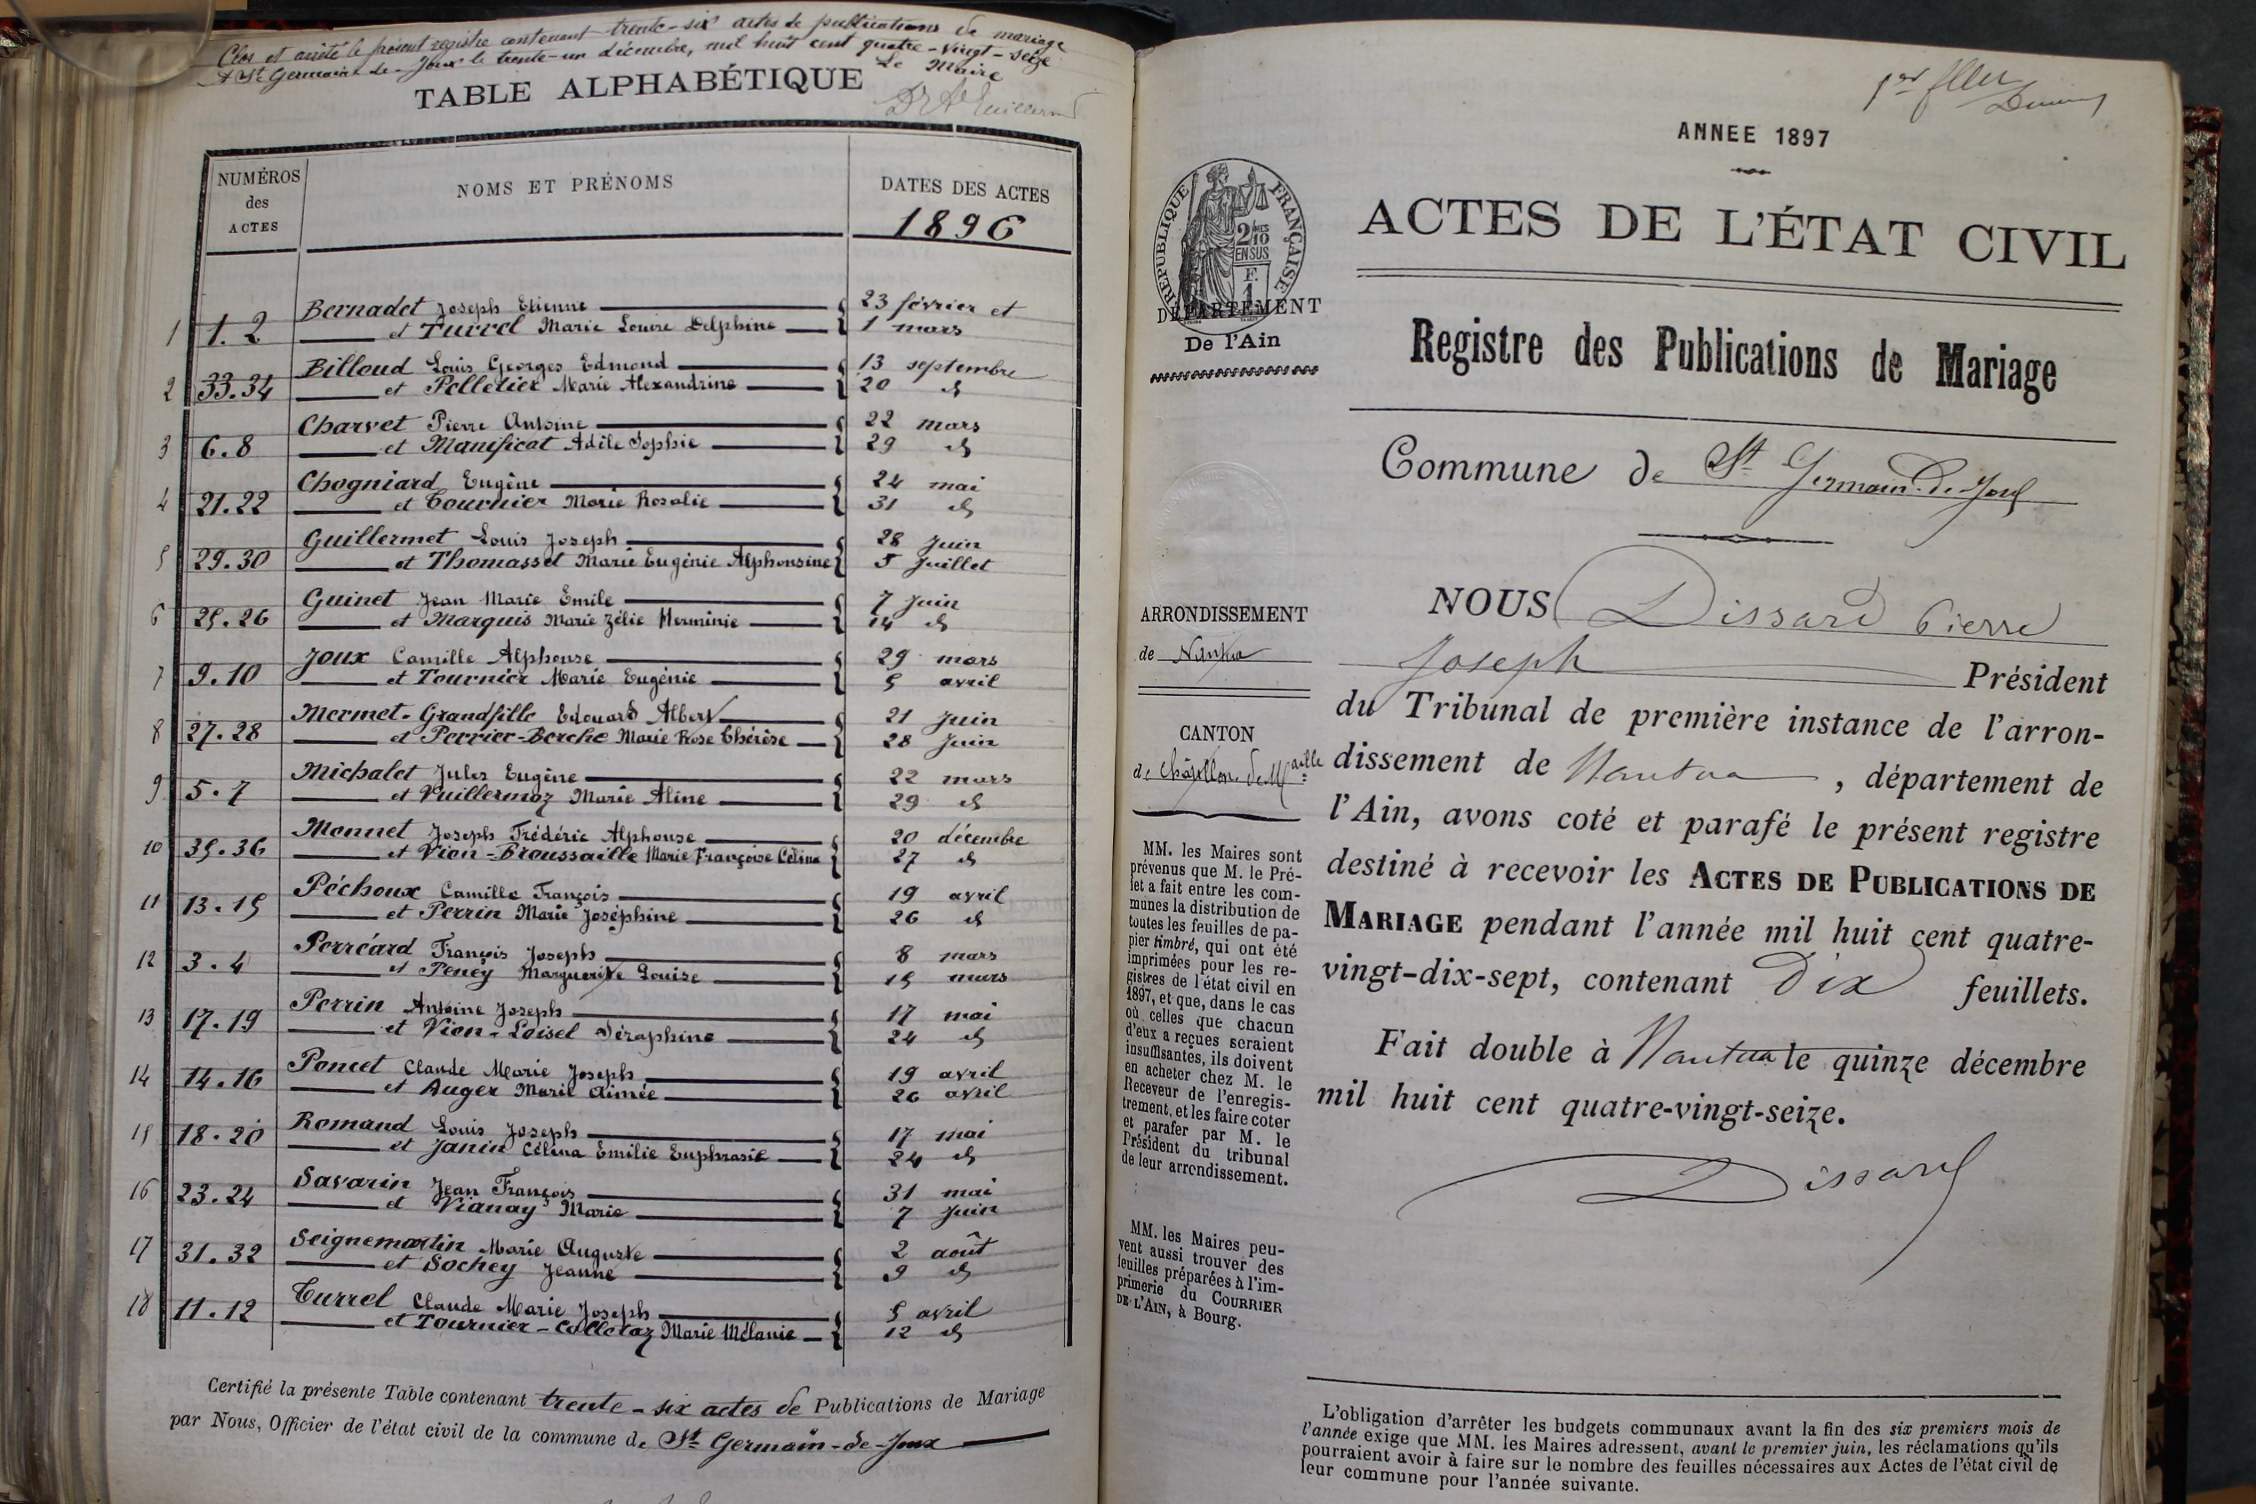 Clos et arrêté le présent registre contenant trente-six actes de publications de mariage
A St Germain-de-Joux le trente-un décembre, mil huit cent quatre-vingt-seize
Le Maire
TABLE ALPHABÉTIQUE
NUMÉROS des ACTES
NOMS ET PRÉNOMS
DATES DES ACTES
1896
1 1.2 Bernadet Joseph Etienne 23 février et
et Tuirel Marie Louise Delphine 1 mars
2 33.34 Billoud Louis Georges Edmond 13 septembre
et Pelletier Marie Alexandrine 20 d
3 6.8 Charvet Pierre Antoine 22 mars
et Manificat Adèle Sophie 29 d
4 21.22 Chogniard Eugène 24 mai
et Tournier Marie Rosalie 31 d
5 29.30 Guillermet Louis Joseph 28 Juin
et Thomasset Marie Eugénie Alphonsine 5 Juillet
6 25.26 Guinet Jean Marie Emile 7 Juin
et Marquis Marie Zélie Herminie 14 d
7 9.10 Joux Camille Alphonse 29 mars
et Tournier Marie Eugénie 5 avril
8 27.28 Mermet-Grandfille Edouard Albert 21 Juin
et Perrier-Berche Marie Rose Thérèse 28 Juin
9 5.7 Michalet Jules Eugène 22 mars
et Vuillermoz Marie Aline 29 d
10 35.36 Monnet Joseph Frédéric Alphonse 20 décembre
et Vion-Broussaille Marie Françoise Célina 27 d
11 13.15 Péchoux Camille François 19 avril
et Perrin Marie Joséphine 26 d
12 3.4 Perréard François Joseph 8 mars
et Peney Marguerite Louise 15 mars
13 17.19 Perrin Antoine Joseph 17 mai
et Vion-Loisel Séraphine 24 d
14 14.16 Poncet Claude Marie Joseph 19 avril
et Auger Marie Aimée 26 avril
15 18.20 Romand Louis Joseph 17 mai
et Janin Célina Emilie Euphrasie 24 d
16 23.24 Savarin Jean François 31 mai
et Vianay Marie 7 Juin
17 31.32 Seignemartin Marie Auguste 2 août
et Sochey Jeanne 9 d
18 11.12 Turrel Claude Marie Joseph 5 avril
et Tournier-Colletaz Marie Mélanie 12 d
Certifié la présente Table contenant trente-six actes de Publications de Mariage
par Nous, Officier de l'état civil de la commune de St Germain-de-Joux
ANNEE 1897
RÉPUBLIQUE FRANÇAISE
2 MES
10
EN SUS
F.
1
DÉPARTEMENT
De l'Ain
ACTES DE L'ÉTAT CIVIL
Registre des Publications de Mariage
Commune de St Germain-de-Joux
ARRONDISSEMENT
de Nantua
CANTON
de Châtillon de Maille
MM. les Maires sont
prévenus que M. le Pré-
fet a fait entre les com-
munes la distribution de
toutes les feuilles de pa-
pier timbré, qui ont été
imprimées pour les re-
gistres de l'état civil en
1897, et que, dans le cas
où celles que chacun
d'eux a reçues seraient
insuffisantes, ils doivent
en acheter chez M. le
Receveur de l'enregis-
trement, et les faire coter
et parafer par M. le
Président du tribunal
de leur arrondissement.
MM. les Maires peu-
vent aussi trouver des
feuilles préparées à l'im-
primerie du COURRIER
DE L'AIN, à Bourg.
NOUS Dissard Pierre
Joseph Président
du Tribunal de première instance de l'arron-
dissement de Nantua, département de
l'Ain, avons coté et parafé le présent registre
destiné à recevoir les ACTES DE PUBLICATIONS DE
MARIAGE pendant l'année mil huit cent quatre-
vingt-dix-sept, contenant Dix feuillets.
Fait double à Nantua le quinze décembre
mil huit cent quatre-vingt-seize.
Dissard
L'obligation d'arrêter les budgets communaux avant la fin des six premiers mois de
l'année exige que MM. les Maires adressent, avant le premier juin, les réclamations qu'ils
pourraient avoir à faire sur le nombre des feuilles nécessaires aux Actes de l'état civil de
leur commune pour l'année suivante.